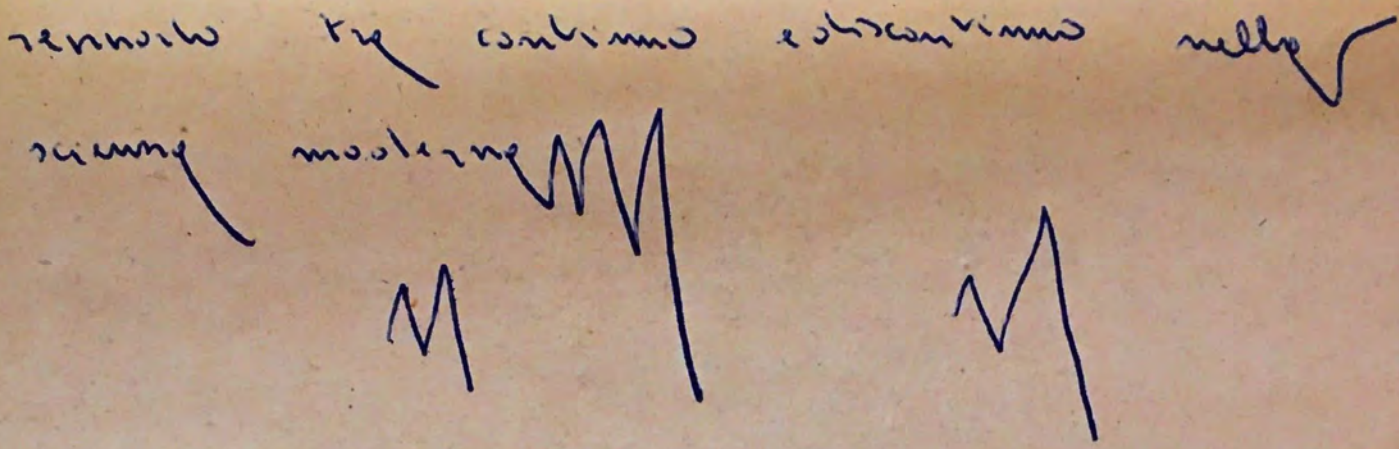 rapporto tra continuo e discontinuo nella
scienza moderna